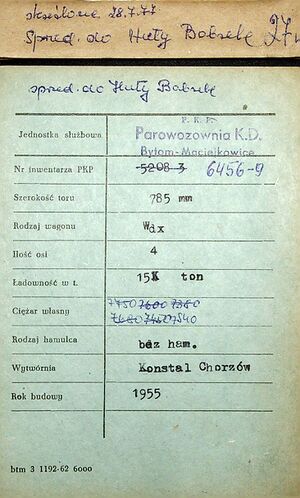 skreślone 28.7.77
Sprzed. do Huty Bobrek 27
sprzed. do Huty Bobrek
P. K. P.
Jednostka służbowa Parowozownia K.D.
Bytom-Maciejkowice
Nr inwentarza PKP 5208-3 6456-9
Szerokość toru 785 mm
Rodzaj wagonu Wdx
Ilość osi 4
Ładowność w t. 15 ton
Ciężar własny 7450 7600 7380
7680 7460 7540
Rodzaj hamulca bez ham.
Wytwórnia Konstal Chorzów
Rok budowy 1955
btm 3 1192-62 6000